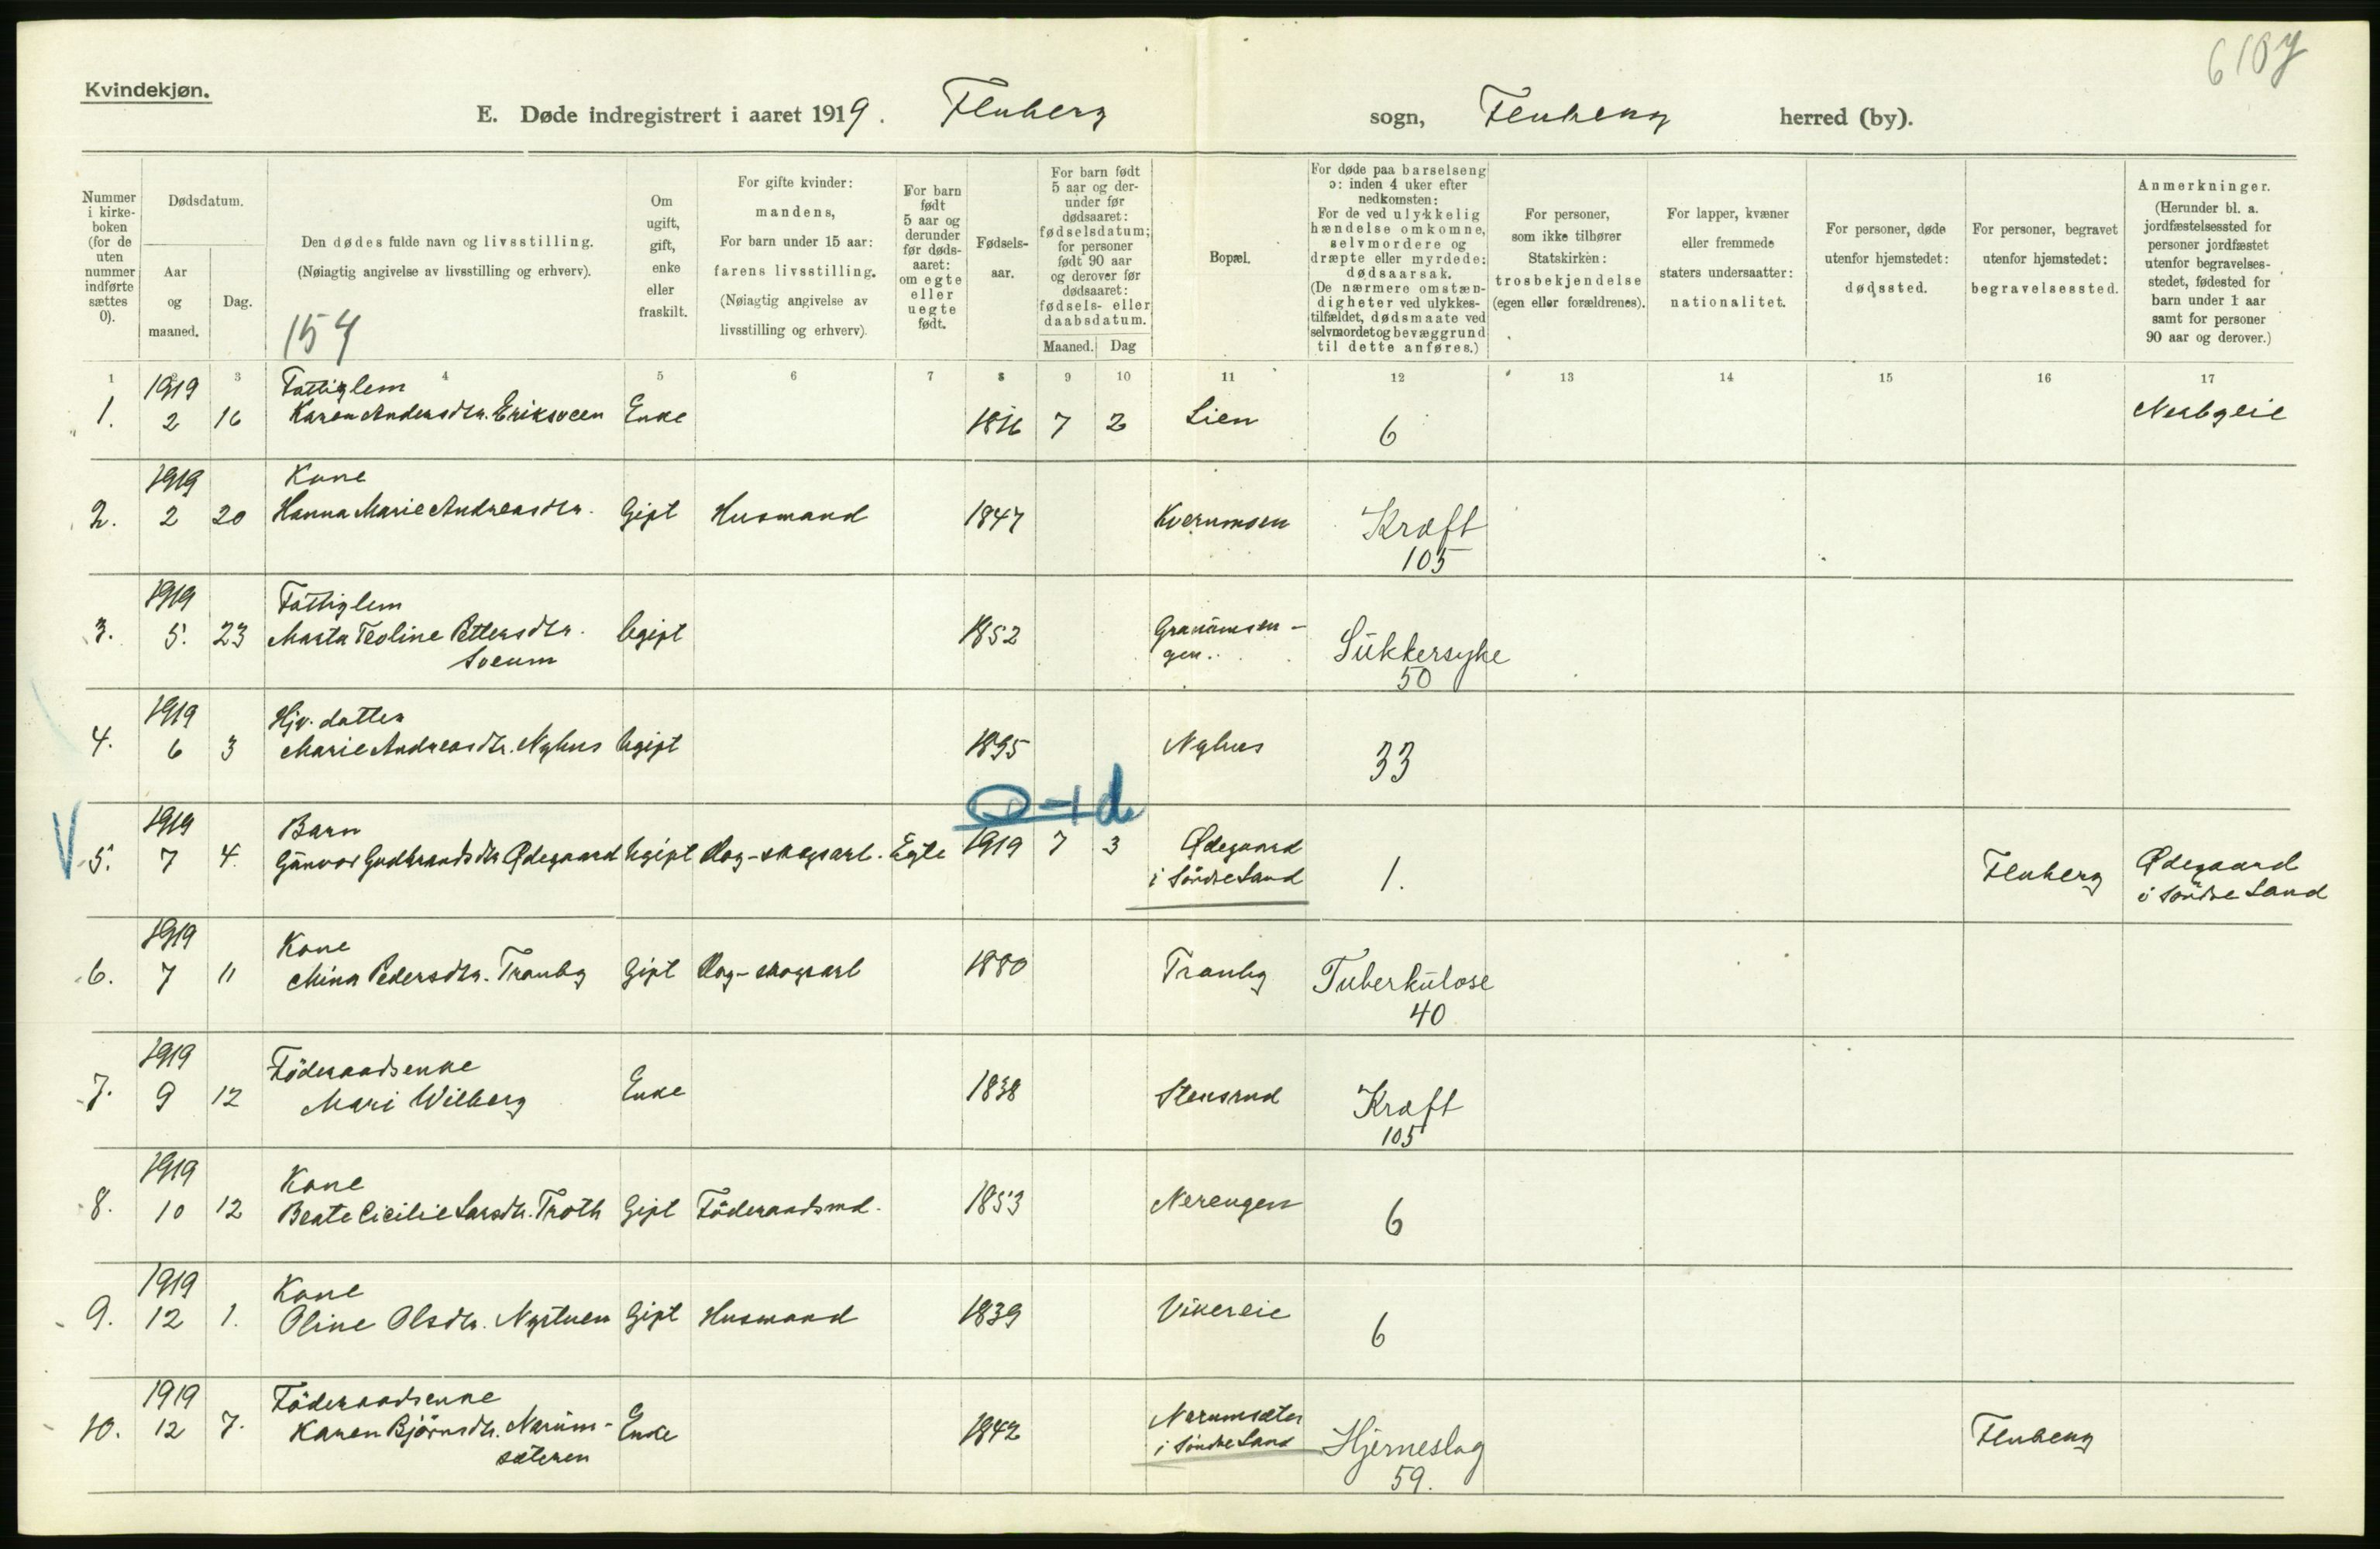 6107
Kvindekjøn.
E. Døde indregistrert i aaret 1919. Fluberg sogn, Fluberg herred (by).
Nummer i kirke-boken (for de uten nummer indførte sættes 0).
Dødsdatum.
Aar og maaned.
Dag.
Den dødes fulde navn og livsstilling.
(Nøiagtig angivelse av livsstilling og erhverv).
154
Om ugift, gift, enke eller fraskilt.
For gifte kvinder:
mandens,
For barn under 15 aar:
farens livsstilling.
(Nøiagtig angivelse av
livsstilling og erhverv).
For barn født 5 aar og derunder før døds-aaret: om egte eller uegte født.
Fødsels-aar.
For barn født 5 aar og der-under før dødsaaret: fødselsdatum; for personer født 90 aar og derover før dødsaaret: fødsels- eller daabsdatum.
Maaned. Dag
Bopæl.
For døde paa barselseng
ɔ: inden 4 uker efter
nedkomsten:
For de ved ulykkelig
hændelse omkomne,
selvmordere og
dræpte eller myrdede:
dødsaarsak.
(De nærmere omstæn-
digheter ved ulykkes-
tilfældet, dødsmaate ved
selvmordet og bevæggrund
til dette anføres.)
For personer,
som ikke tilhører
Statskirken:
trosbekjendelse
(egen eller forældrenes).
For lapper, kvæner
eller fremmede
staters undersaatter:
nationalitet.
For personer, døde
utenfor hjemstedet:
dødssted.
For personer, begravet
utenfor hjemstedet:
begravelsessted.
Anmerkninger.
(Herunder bl. a.
jordfæstelsessted for
personer jordfæstet
utenfor begravelses-
stedet, fødested for
barn under 1 aar
samt for personer
90 aar og derover.)
1 2 3 4 5 6 7 8 9 10 11 12 13 14 15 16 17
1919 Fattiglem
1. 2 16 Karen Andersdtr. Eriksveen Enke 7 2 Lien 6
1919 Kone
2. 2 20 Hanna Marie Andreasdtr. Gift Husmand 1847 Kvernmoen Kræft
105
1919 Fattiglem
3. 5. 23 Marta Teoline Pettersdtr. Ugift 1852 Sukkersyke
Sveum gen.
50
1919 Hjv. datter
4. 6 3 Marie Andreasdtr. Nyhus Ugift 1895 Nyhus 33
1919 Barn
5. 7 4. Gunvor Gudbrandsdtr Ødegaard Ugift Dag-skogsarb. Egte 1919 7 3 Ødegaard 1. Fluberg Ødegaard
i Søndre Land i Søndre Land
1919 Kone
6. 7 11 Mina Pedersdtr. Tranby Gift Dag-skogsarb 1880 Tranby Tuberkulose
40
1919 Föderaadsenke
7. 9 12 Mari Wilberg Enke 1838 Stensrud Kræft
105
1919 Kone
8. 10 12 Beate Cicilie Larsdtr. Troth Gift Föderaadsmd. 1853 Nerengen 6
1919 Kone
9. 12 1. Oline Olsdtr. Nystuen Gift Husmand 1839 Vikereie 6
1919 Föderaadsenke
10. 12 7. Karen Björnsdtr. Narum- Enke 1842 Narumsæter Hjerneslag Fluberg
sæteren i Søndre Land 59.